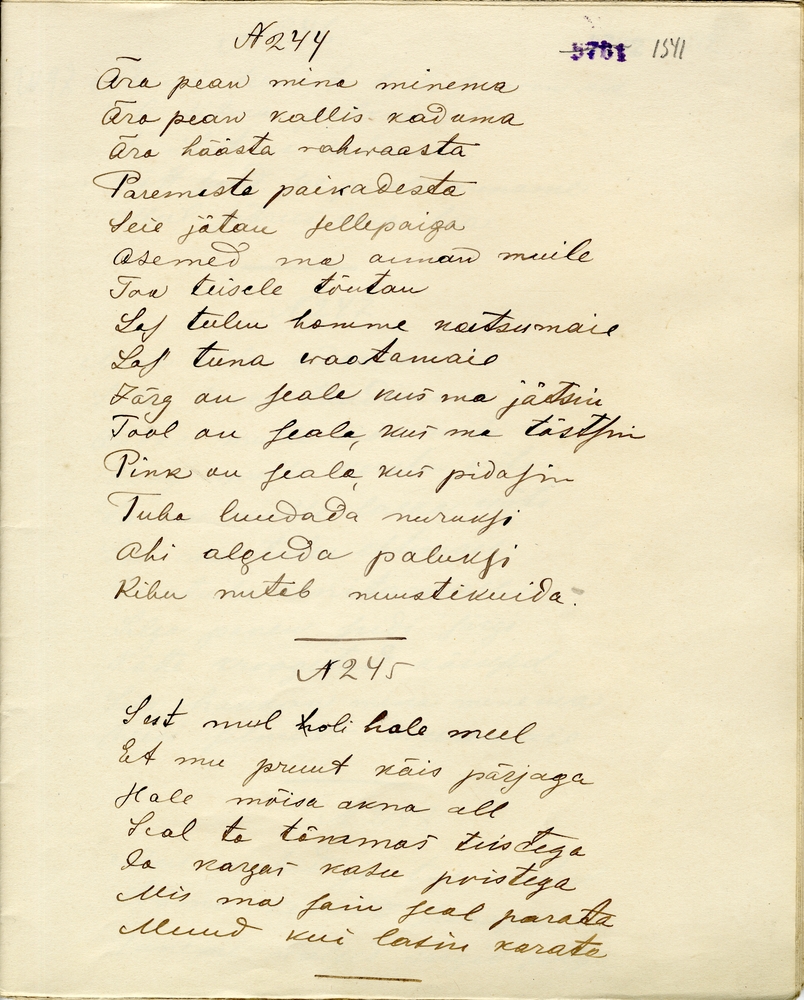 N 244
5761 1541
Ära pean mina minema
Ära pean kallis kaduma
Ära häästa rahwaasta
Paremista paikadesta
Seie jätan selle paiga
Asemed ma annan muile
Too teisele tõutan
Las tulen homme katsumaie
Las tuna waatamaie
Järg on seale kus ma jätsin
Tool on seala, kus ma tõstsin
Pink on seala, kus pidasin
Tuba luudada nuruksi
Ahi alguda paluksi
Kibu nuteb nuustikuida.
N 245
Sest mul oli hale meel
Et mu pruut käis pärjaga
Hale mõisa akna all
Seal ta tõramas teistega
Ja kargas kasu poistega
Mis ma sain seal parata
Muud kui lasin karata